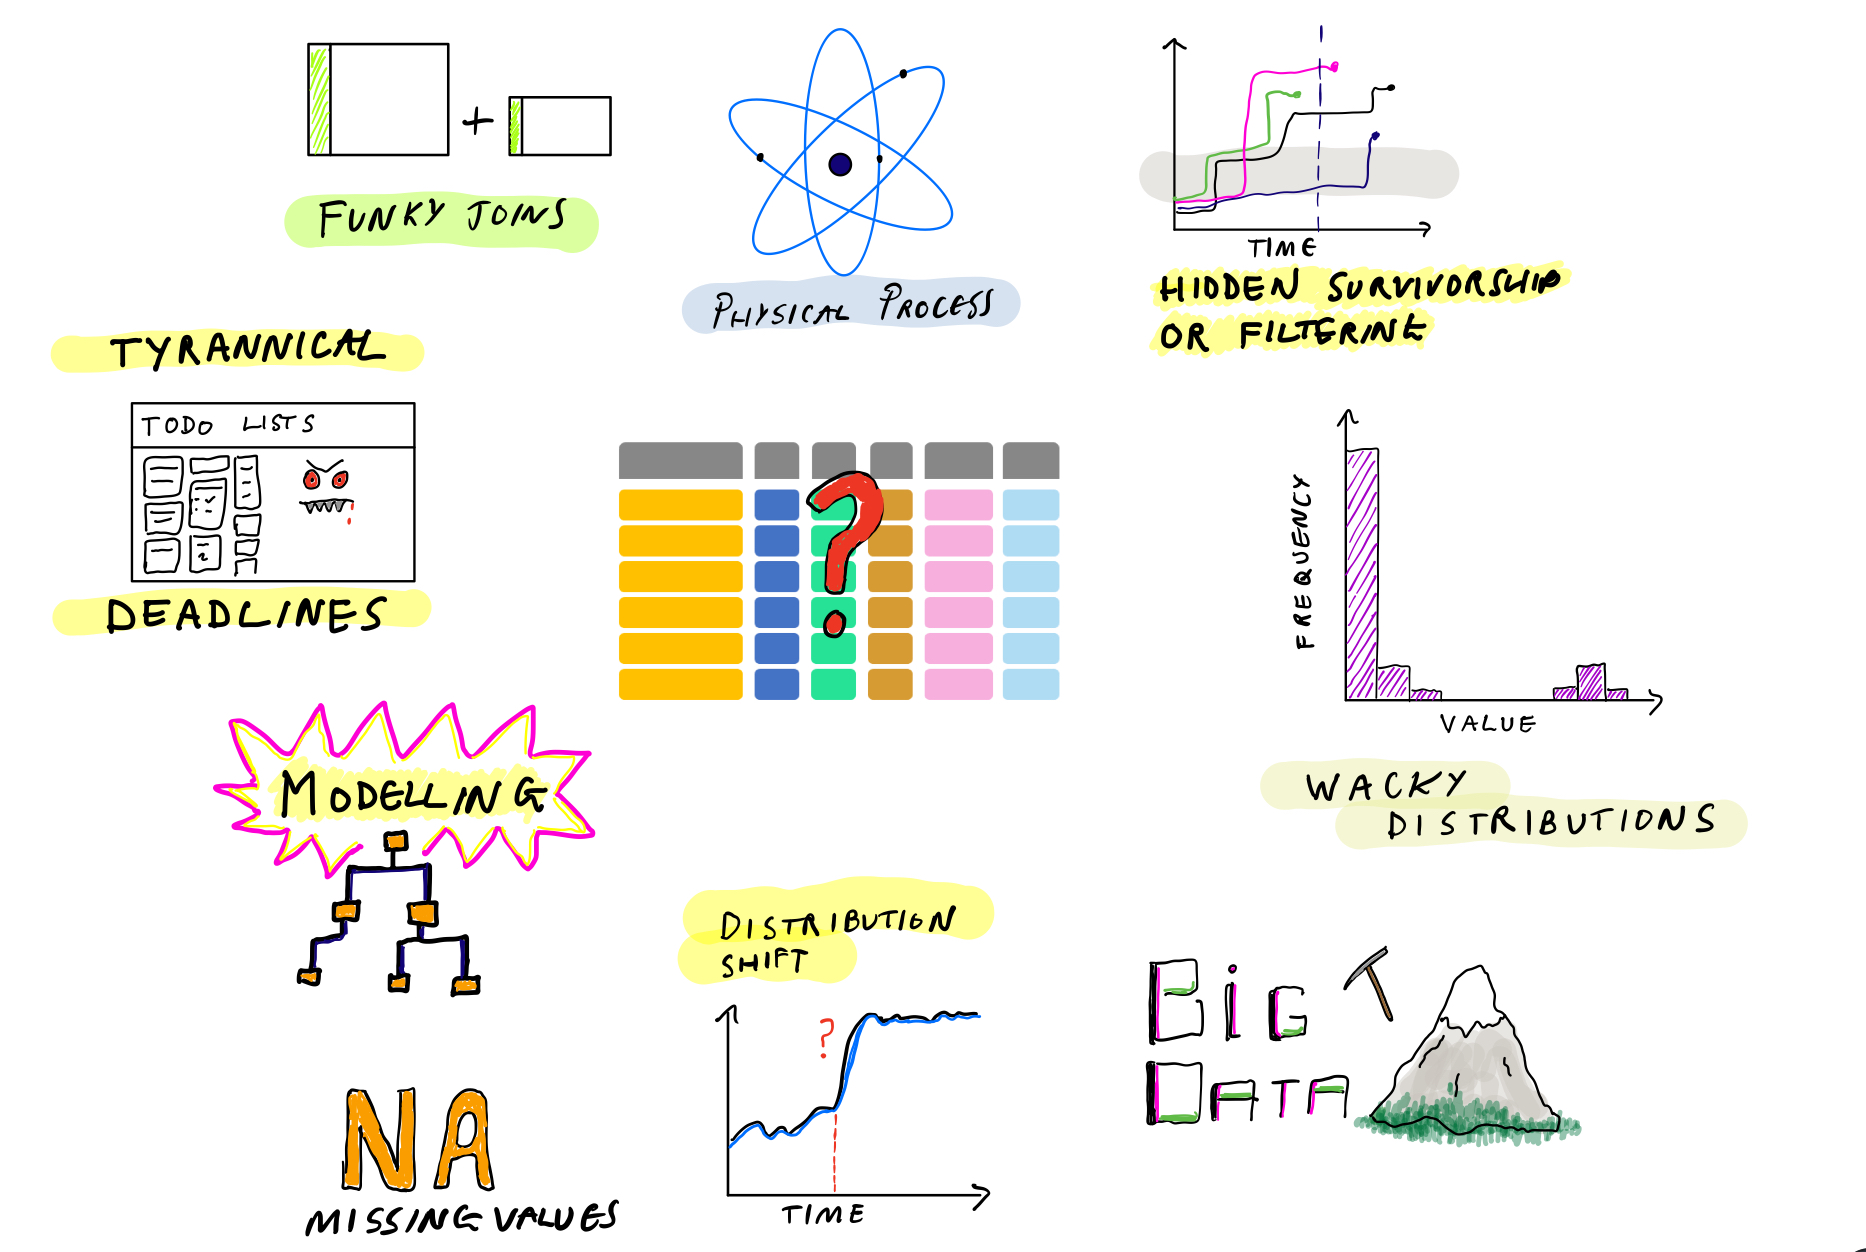 FUNKY JOINS
PHYSICAL PROCESS
TIME
HIDDEN SURVIVORSHIP
OR FILTERING
TYRANNICAL
TODO LISTS
DEADLINES
?
FREQUENCY
VALUE
WACKY
DISTRIBUTIONS
MODELLING
DISTRIBUTION
SHIFT
?
TIME
BiG
DATA
NA
MISSING VALUES